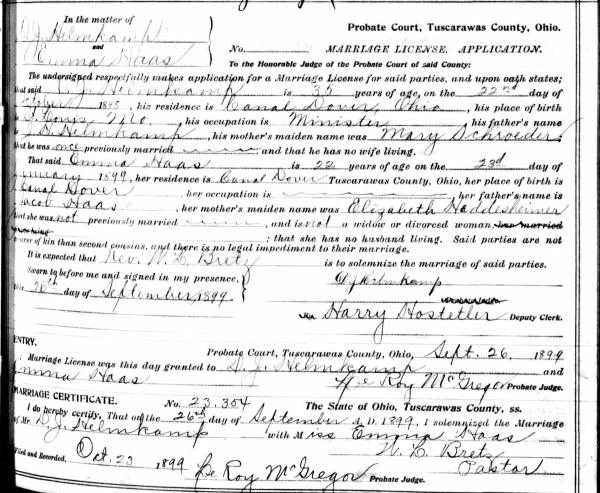 In the matter of
D. J. Helmkamp
and
Emma Haas
Probate Court, Tuscarawas County, Ohio.
No. MARRIAGE LICENSE. APPLICATION.
To the Honorable Judge of the Probate Court of said County:
The undersigned respectfully makes application for a Marriage License for said parties, and upon oath states;
that said D. J. Helmkamp is 35 years of age, on the 22nd day of
October 1898, his residence is Canal Dover, Ohio, his place of birth
St. Louis Mo., his occupation is Minister, his father's name
J. H. Helmkamp, his mother's maiden name was Mary Schroeder,
that he was once previously married and that he has no wife living.
That said Emma Haas is 22 years of age on the 23d day of
January 1899, her residence is Canal Dover Tuscarawas County, Ohio, her place of birth is
Canal Dover, her occupation is her father's name is
Jacob Haas, her mother's maiden name was Elizabeth Haddesheimer
that she was not previously married, and is not a widow or divorced woman,
; that she has no husband living. Said parties are not
nearer of kin than second cousins, and there is no legal impediment to their marriage.
It is expected that Rev. W. L. Bretz is to solemnize the marriage of said parties.
Sworn to before me and signed in my presence,
this 26th day of September, 1899
D. J. Helmkamp
Harry Hostetler Deputy Clerk.
ENTRY.
Probate Court, Tuscarawas County, Ohio, Sept. 26, 1899
Marriage License was this day granted to D. J. Helmkamp and
Emma Haas
Le Roy McGregor Probate Judge.
MARRIAGE CERTIFICATE. No. 23,354 The State of Ohio, Tuscarawas County, ss.
I do hereby certify, That on the 26th day of September A.D. 1899, I solemnized the Marriage
of Mr. D. J. Helmkamp with Miss Emma Haas
W. L. Bretz
Pastor
Filed and Recorded, Oct. 23 1899
Le Roy McGregor Probate Judge.